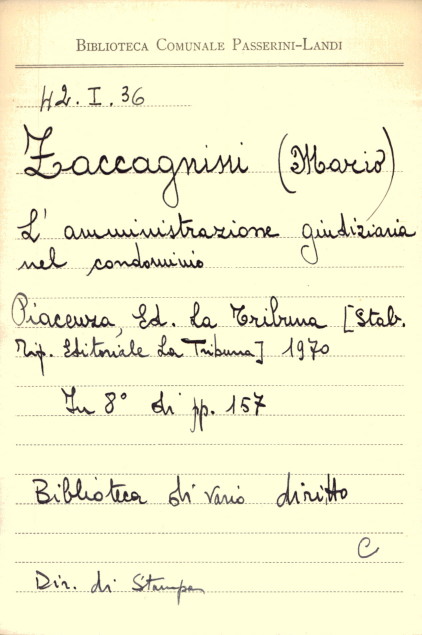 BIBLIOTECA COMUNALE PASSERINI-LANDI
42. I. 36
Zaccagnini (Mario)
L' amministrazione giudiziaria
nel condominio
Piacenza, Ed. La Tribuna [Stab.
Tip. Editoriale La Tribuna] 1970
In 8° di pp. 157
Biblioteca di vario diritto
C
Dir. di Stampa